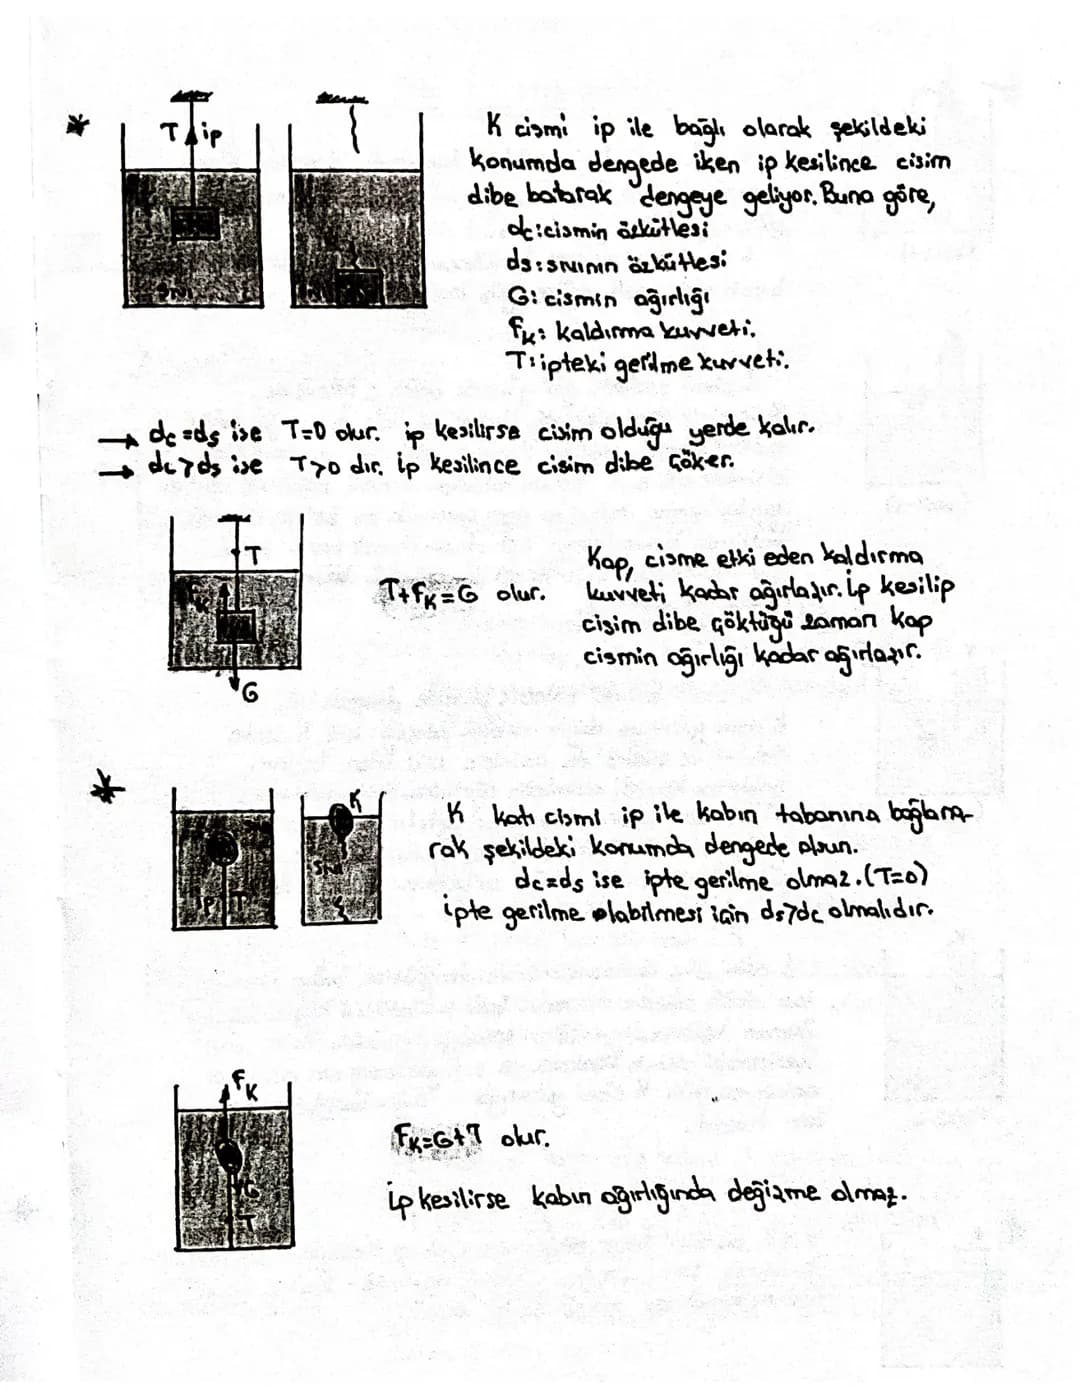 T ip
K cismi ip ile bağlı olarak şekildeki
konumda dengede iken ip kesilince cisim
dibe batarak dengeye geliyor. Buna göre,
dc: cismin özkütlesi
ds: sıvının özkütlesi
G: cismin ağırlığı
FK: kaldırma kuvveti.
T: ipteki gerilme kuvveti.
→ dc=ds ise T=0 olur. ip kesilirse cisim olduğu yerde kalır.
→ dc>ds ise T>0 dır. İp kesilince cisim dibe çöker.
T
FK
G
T+FK=G olur.
Kap, cisme etki eden kaldırma
kuvveti kadar ağırlaşır. İp kesilip
cisim dibe çöktüğü zaman kap
cismin ağırlığı kadar ağırlaşır.
K
ip T
Sıvı
K katı cismi ip ile kabın tabanına bağlana-
rak şekildeki konumda dengede olsun.
dc=ds ise ipte gerilme olmaz. (T=0)
ipte gerilme olabilmesi için ds>dc olmalıdır.
FK
G
T
FK=G+T olur.
İp kesilirse kabın ağırlığında değişme olmaz.